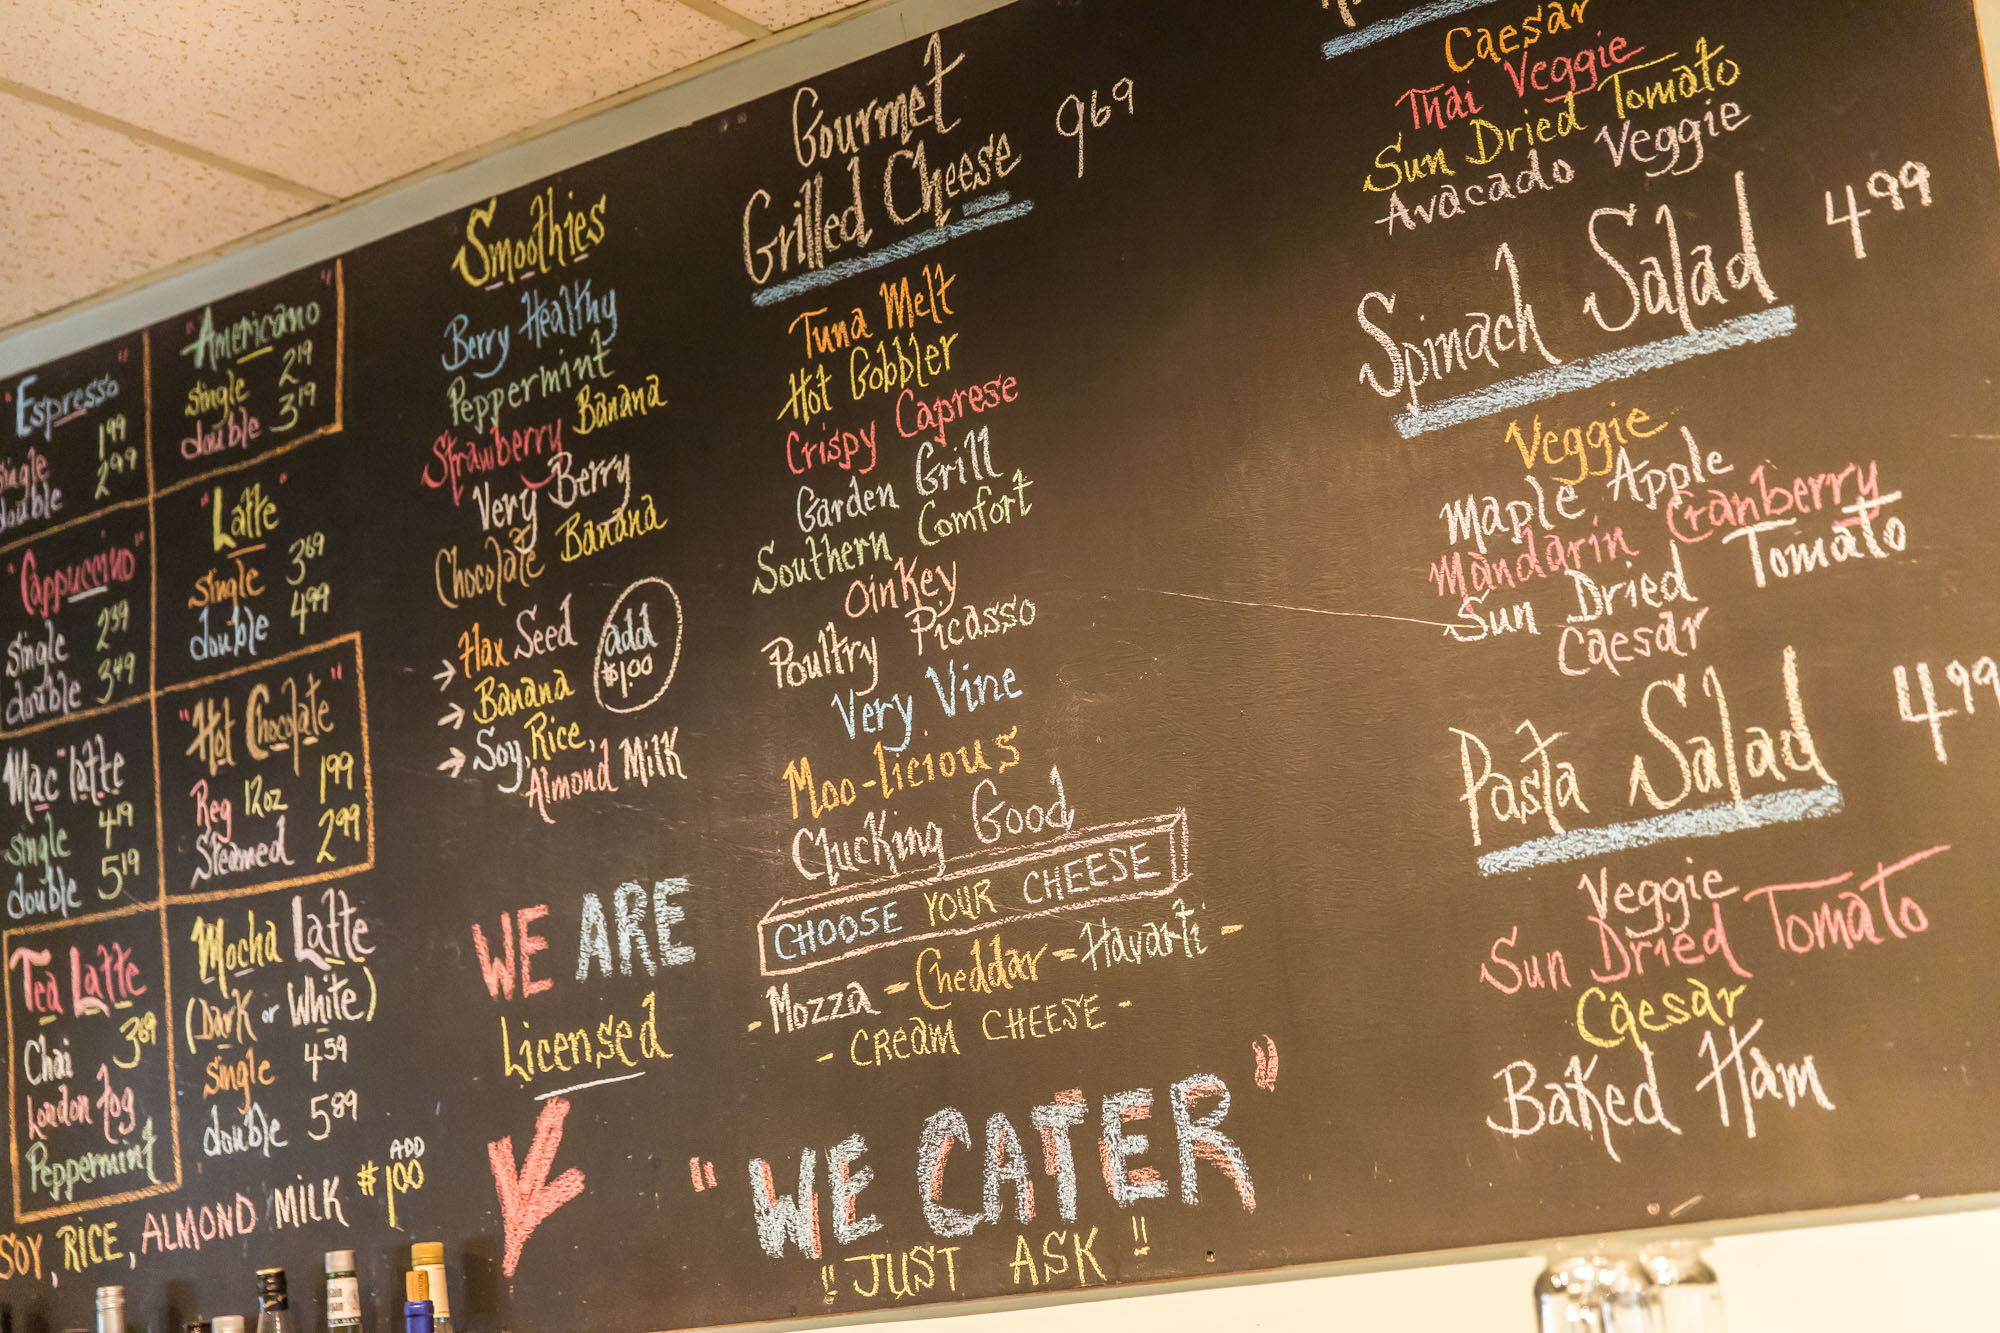 "Espresso"
single 1.99
double 2.99
"Cappuccino"
single 2.39
double 3.49
Mac "latte
single 4.19
double 5.19
Tea Latte
3.69
Chai
London Fog
Peppermint
"Americano"
single 2.19
double 3.19
"Latte"
single 3.69
double 4.99
"Hot Chocolate"
Reg 12oz 1.99
Steamed 2.99
Mocha Latte
(Dark or White)
single 4.59
double 5.89
SOY, RICE, ALMOND MILK ADD $1.00
Smoothies
Berry Healthy
Peppermint
Strawberry Banana
Very Berry
Chocolate Banana
→ Flax Seed
→ Banana
→ Soy, Rice,
Almond Milk
add
$1.00
WE ARE
Licensed
Gourmet
Grilled Cheese 9.69
Tuna Melt
Hot Gobbler
Crispy Caprese
Garden Grill
Southern Comfort
Oinkey
Poultry Picasso
Very Vine
Moo-licious
Clucking Good
CHOOSE YOUR CHEESE
- Mozza - Cheddar = Havarti -
- CREAM CHEESE -
"WE CATER"
"JUST ASK"
Caesar
Thai Veggie
Sun Dried Tomato
Avacado Veggie
Spinach Salad 4.99
Veggie
Maple Apple
Mandarin Cranberry
Sun Dried Tomato
Caesar
Pasta Salad 4.99
Veggie
Sun Dried Tomato
Caesar
Baked Ham